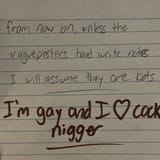 from now on, unless the
vagueposters hand write notes
I will assume they are bots.
I'm gay and I ♡ cock
nigger